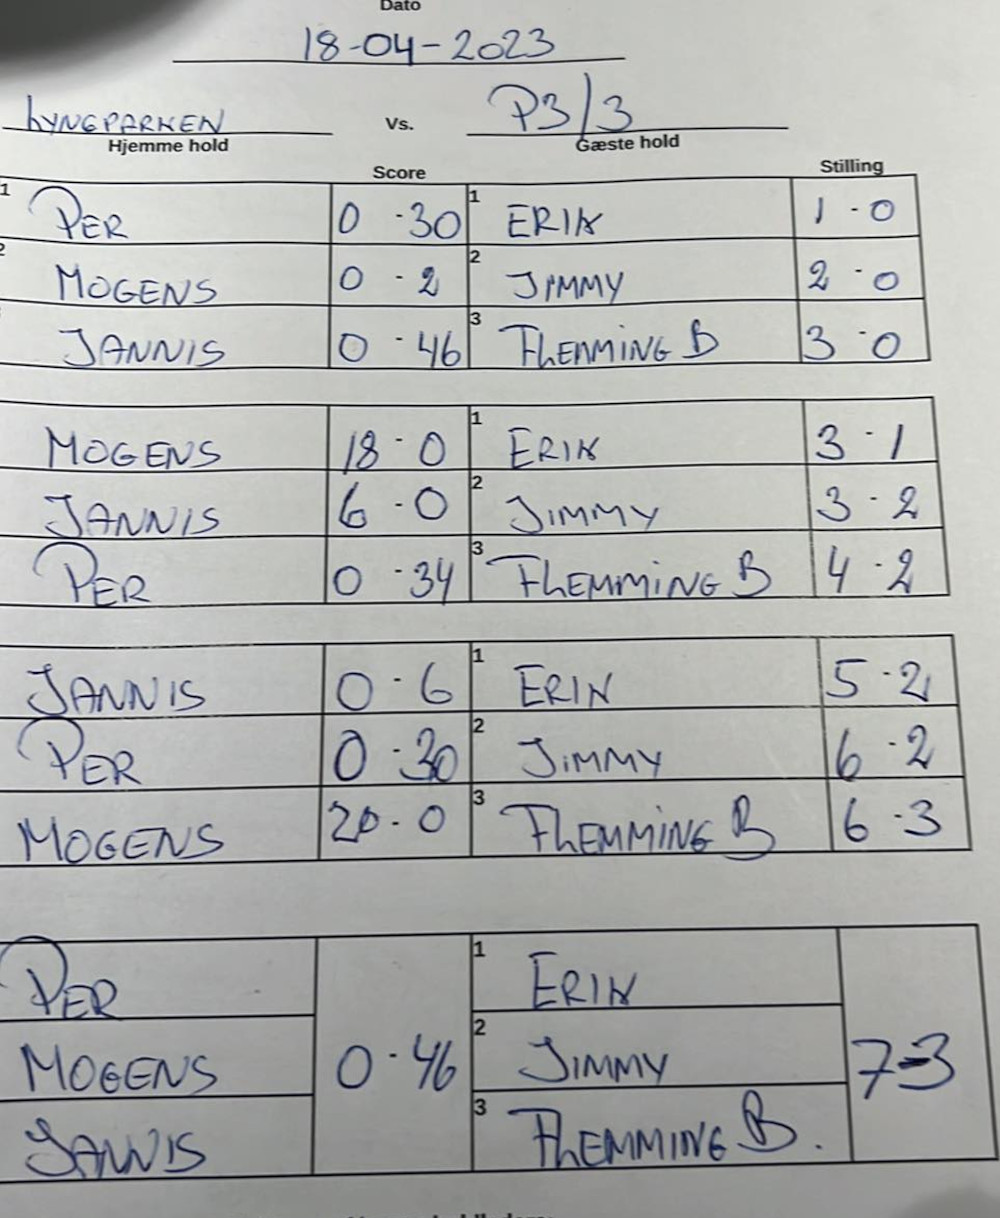 Dato
18-04-2023
LYNGPARKEN Vs. P3/3
Hjemme hold Gæste hold
Score Stilling
1 PER 0 - 30 1 ERIK 1 - 0
2 MOGENS 0 - 2 2 JIMMY 2 - 0
JANNIS 0 - 46 3 FLEMMING B 3 - 0
MOGENS 18 - 0 1 ERIK 3 - 1
JANNIS 6 - 0 2 JIMMY 3 - 2
PER 0 - 34 3 FLEMMING B 4 - 2
JANNIS 0 - 6 1 ERIK 5 - 2
PER 0 - 30 2 JIMMY 6 - 2
MOGENS 20 - 0 3 FLEMMING B 6 - 3
PER 1 ERIK
MOGENS 0 - 46 2 JIMMY 7-3
JANNIS 3 FLEMMING B.